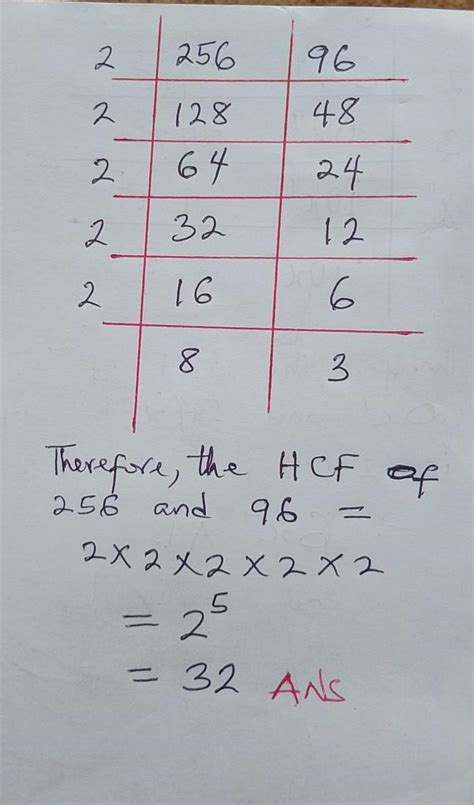 2 256 96
2 128 48
2 64 24
2 32 12
2 16 6
8 3
Therefore, the HCF of
256 and 96 =
2 × 2 × 2 × 2 × 2
= 2⁵
= 32 ANS